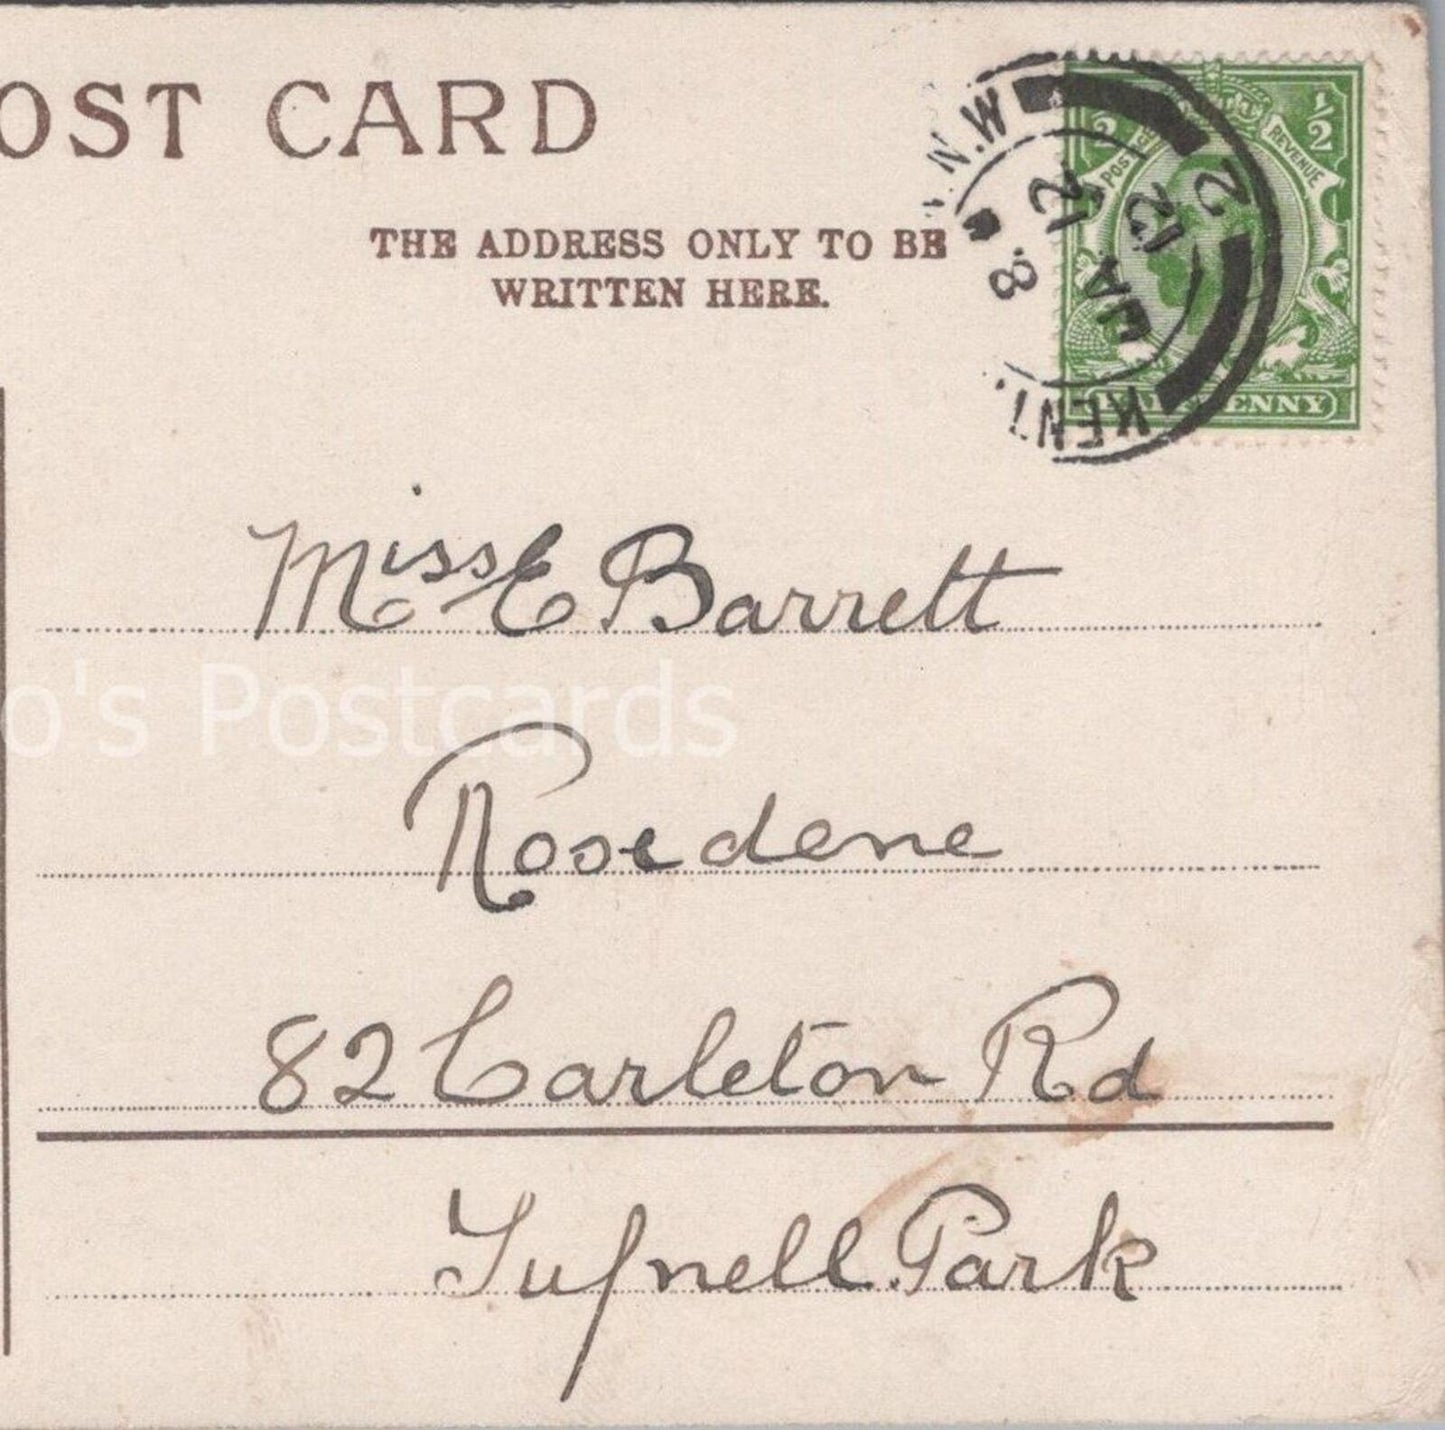 OST CARD
THE ADDRESS ONLY TO BE
WRITTEN HERE.
N.W
8
KENT.
JA 12
12
2
POST
REVENUE
1/2
HALFPENNY
Miss E Barrett
o's Postcards
Rosedene
82 Carleton Rd
Tufnell Park